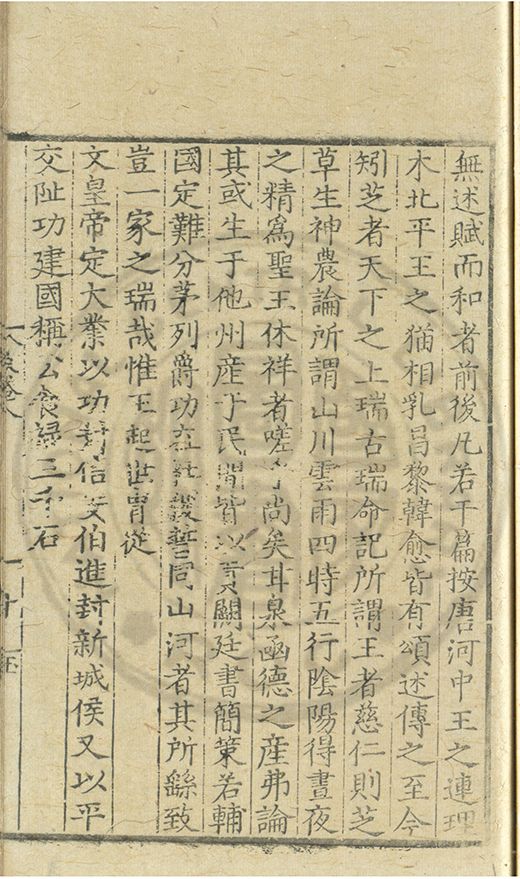 無述賦而和者前後凡若干篇按唐河中王之連理
木北平王之猫相乳昌黎韓愈皆有頌述傳之至今
矧芝者天下之上瑞古瑞命記所謂王者慈仁則芝
草生神農論所謂山川雲雨四時五行隂陽得晝夜
之精爲聖王休祥者嗟乎尚矣甘泉凾德之産弗論
其或生于他州産于民間皆以貢闕廷書簡策若輔
國定難分茅列爵功在社稷誓同山河者其所繇致
豈一家之瑞哉惟王起世胄從
文皇帝定大業以功封信安伯進封新城侯又以平
交阯功建國稱公食禄三千石